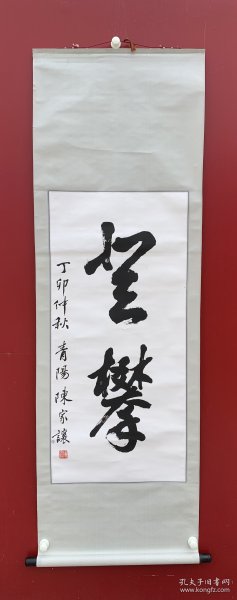 登攀
丁卯仲秋 青陽陳家讓
孔夫子旧书网
www.kongfz.com